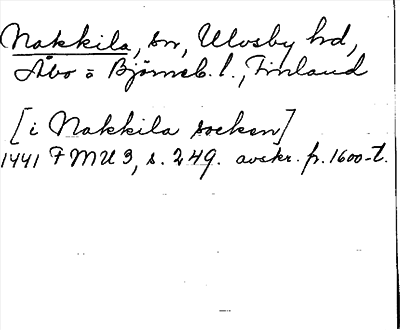 Nakkila, sn, Ulvsby hd,
Åbo o Björneb. l., Finland
[i Nakkila socken]
1441 FMU 3, s. 249. avskr. fr. 1600-t.